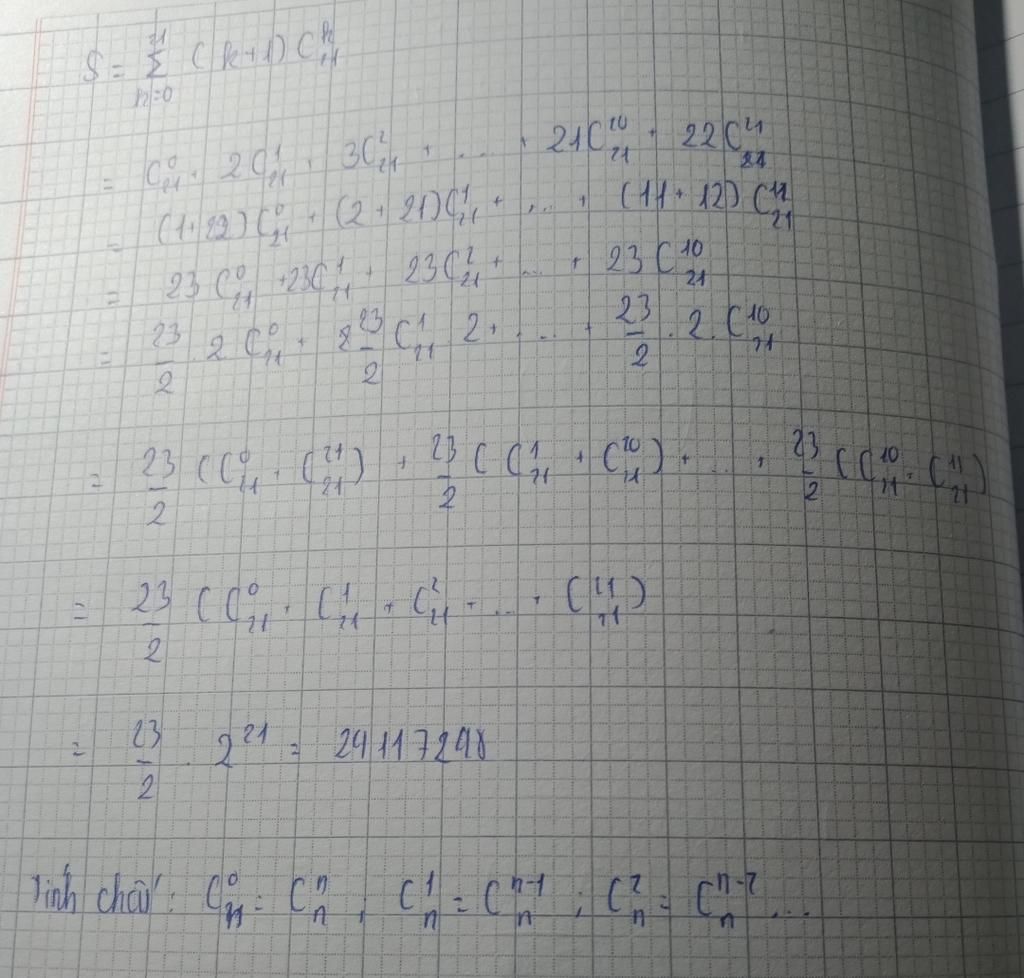 S = \sum_{k=0}^{21} (k+1) C_{21}^{k}
= C_{21}^{0} + 2C_{21}^{1} + 3C_{21}^{2} + ... + 21C_{21}^{20} + 22C_{21}^{21}
= (1+22)C_{21}^{0} + (2+21)C_{21}^{1} + ... + (11+12)C_{21}^{11}
= 23C_{21}^{0} + 23C_{21}^{1} + 23C_{21}^{2} + ... + 23C_{21}^{10}
= \frac{23}{2} . 2 C_{21}^{0} + \frac{23}{2} C_{21}^{1} 2 + ... + \frac{23}{2} . 2 . C_{21}^{10}
= \frac{23}{2} (C_{21}^{0} + C_{21}^{21}) + \frac{23}{2} (C_{21}^{1} + C_{21}^{20}) + ... + \frac{23}{2} (C_{21}^{10} + C_{21}^{11})
= \frac{23}{2} (C_{21}^{0} + C_{21}^{1} + C_{21}^{2} + ... + C_{21}^{21})
= \frac{23}{2} . 2^{21} = 24117248
Tính chất: C_{n}^{0} = C_{n}^{n} ; C_{n}^{1} = C_{n}^{n-1} ; C_{n}^{2} = C_{n}^{n-2} ...